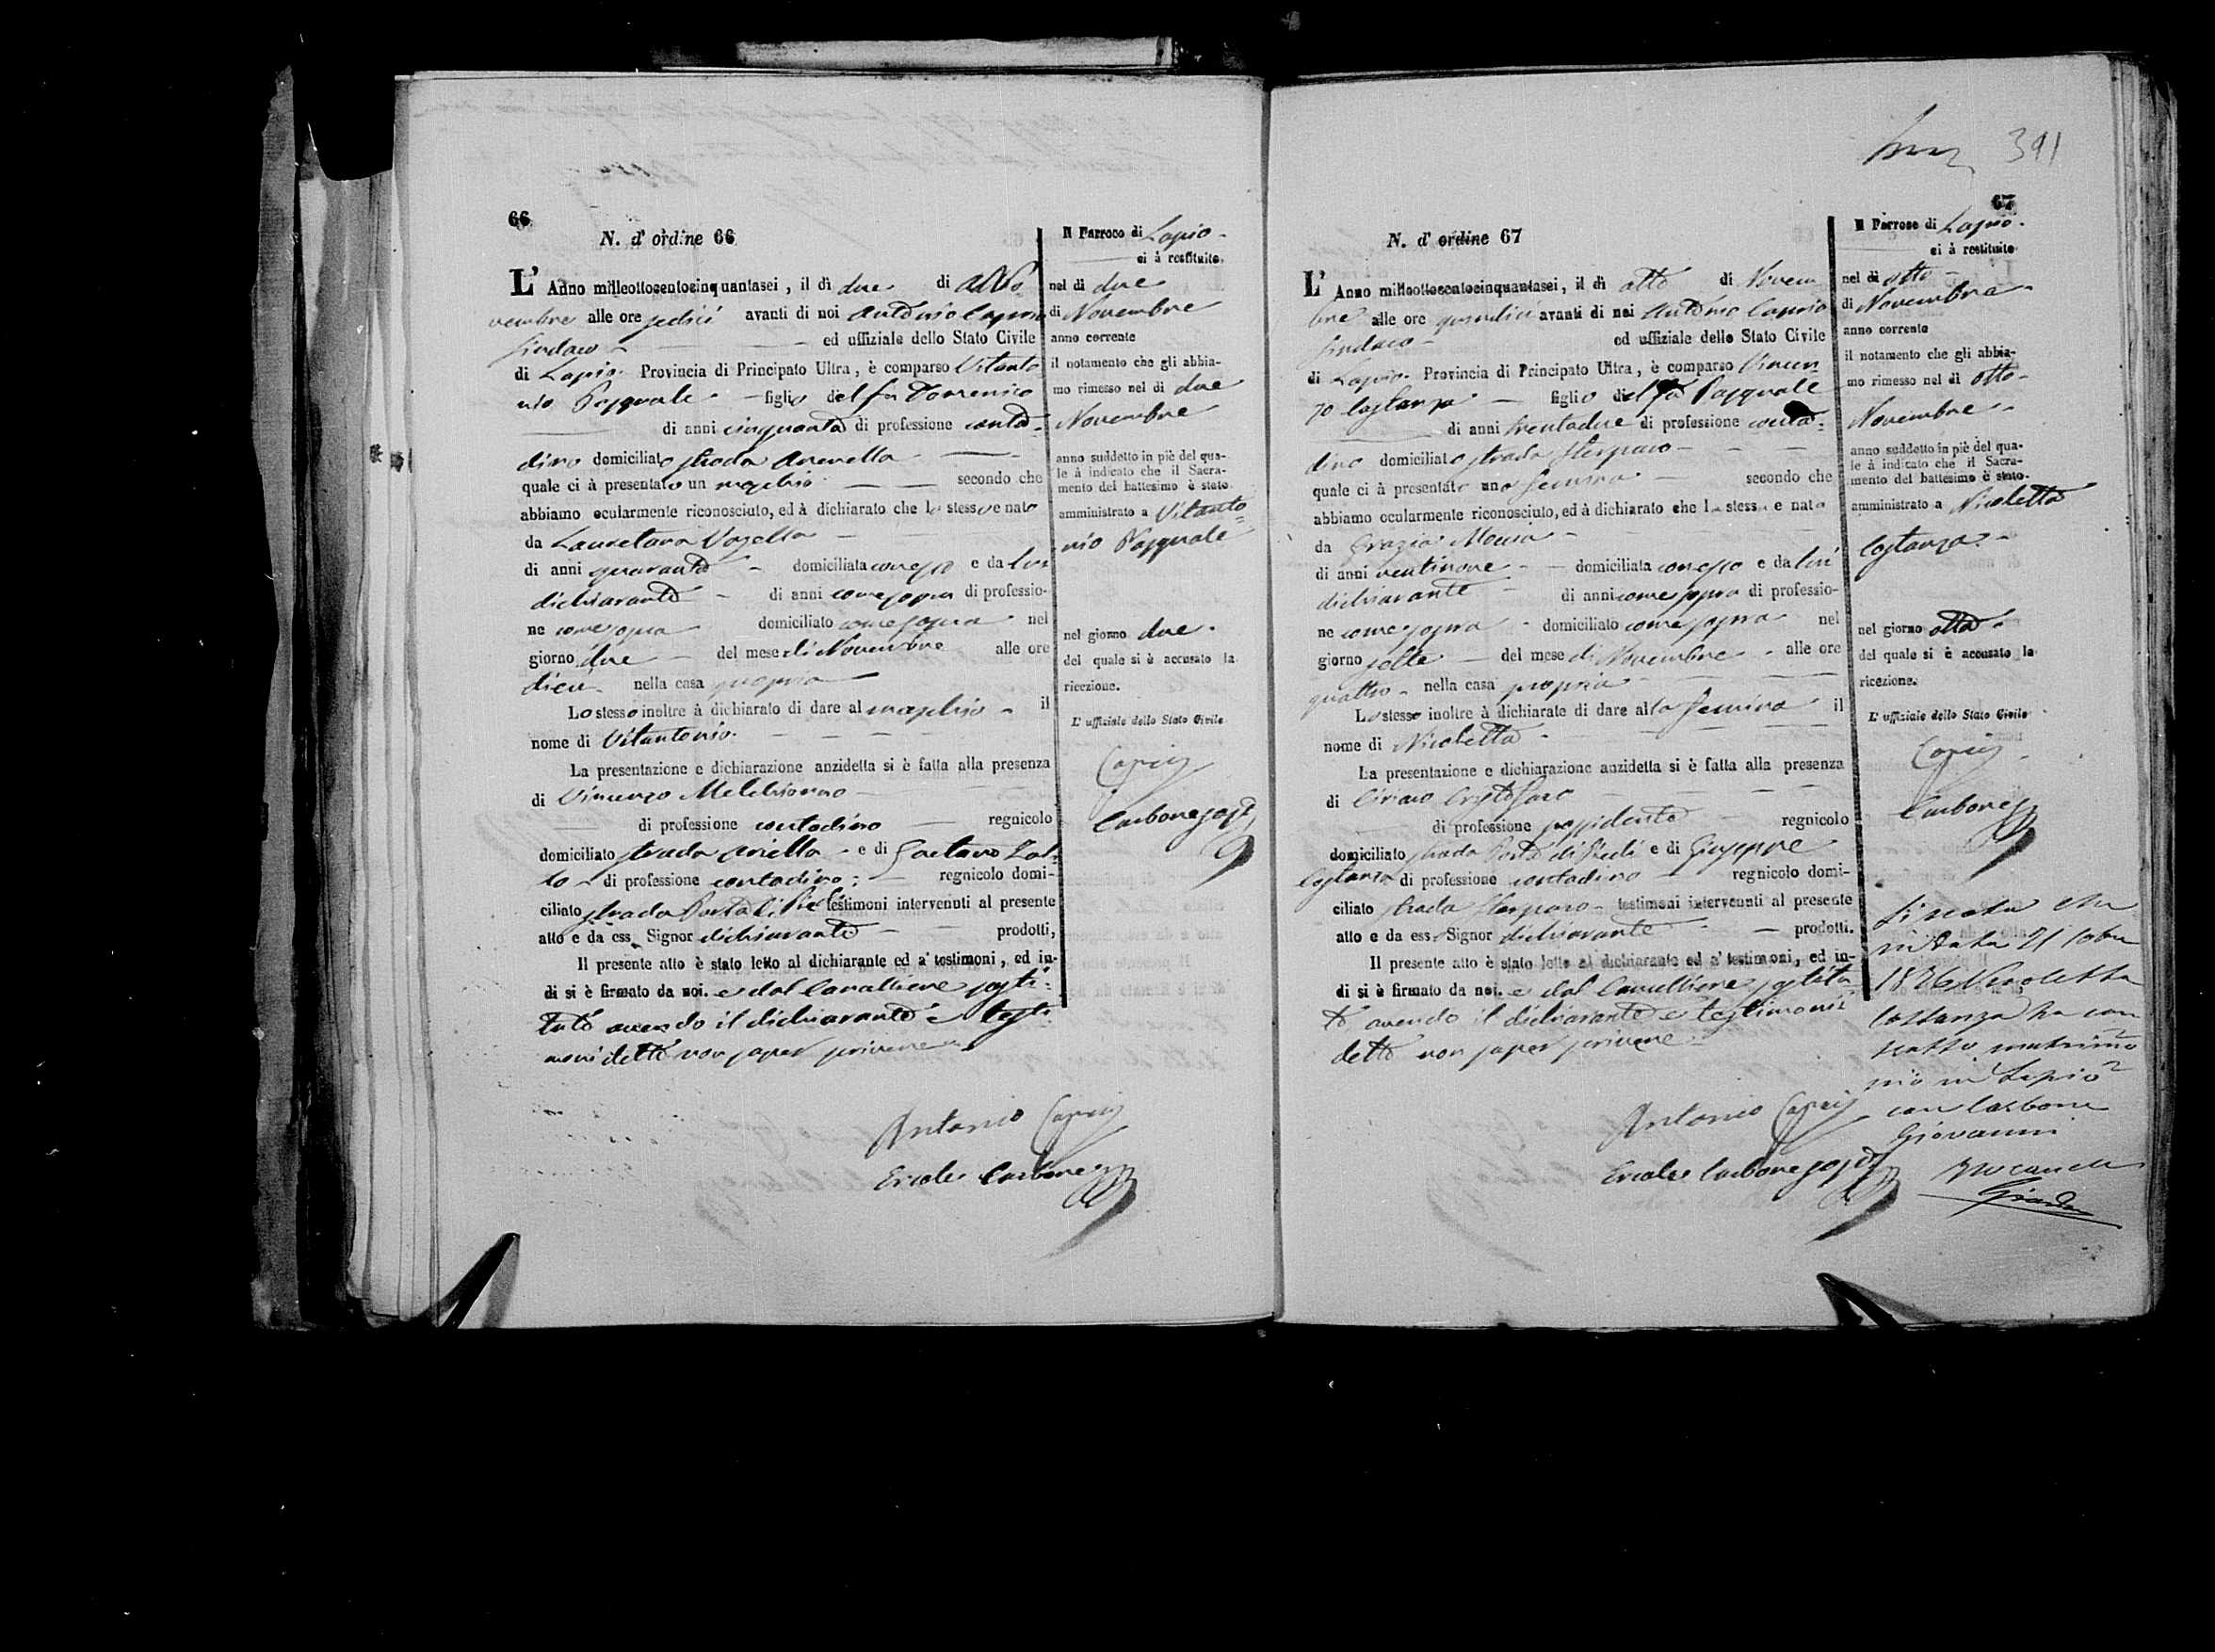 66
N. d' ordine 66
L' Anno milleottocentocinquantasei, il dì due di
vembre alle ore sedici avanti di noi Antonio
Sindaco ed uffiziale dello Stato Civile
di Lapio Provincia di Principato Ultra, è comparso Vitanto
nio Pasquale figlio del fu Domenico
di anni cinquanta di professione conta=
dino domiciliato strada
quale ci à presentato un maschio secondo che
abbiamo ocularmente riconosciuto, ed à dichiarato che lo stesso e nato
da Lauretana
di anni quaranta domiciliata e da lui
dichiarante di anni come sopra di professio-
ne come sopra domiciliato come sopra nel
giorno due del mese di Novembre alle ore
dieci nella casa propria
Lo stesso inoltre à dichiarato di dare al maschio il
nome di Vitantonio
La presentazione e dichiarazione anzidetta si è fatta alla presenza
di Vincenzo
di professione contadino regnicolo
domiciliato strada e di Gaetano
di professione contadino regnicolo domi-
ciliato strada Porta di testimoni intervenuti al presente
atto e da ess Signor dichiarante prodotti,
Il presente atto è stato letto al dichiarante ed a' testimoni, ed in-
di si è firmato da noi. e dal Cancelliere sosti=
tuto avendo il dichiarante e testi
moni detto non saper scrivere
Antonio
Ercole Carbone
Il Parroco di Lapio
ci à restituito
nel di due
di Novembre
anno corrente
il notamento che gli abbia-
mo rimesso nel dì due
Novembre
anno suddetto in piè del qua-
le à indicato che il Sacra-
mento del battesimo è stato
amministrato a Vitanto=
nio Pasquale
nel giorno due
del quale si è accusato la
ricezione.
L' uffiziale dello Stato Civile
Carbone
391
67
N. d' ordine 67
L' Anno milleottocentocinquantasei, il dì otto di Novem
bre alle ore avanti di noi Antonio
Sindaco ed uffiziale dello Stato Civile
di Lapio Provincia di Principato Ultra, è comparso Vincen
zo Costanza figlio del fu Pasquale
di anni trentadue di professione conta=
dino domiciliato strada
quale ci à presentato una femina secondo che
abbiamo ocularmente riconosciuto, ed à dichiarato che la stessa e nata
da Grazia
di anni ventinove domiciliata e da lui
dichiarante di anni come sopra di professio-
ne come sopra domiciliato come sopra nel
giorno sette del mese di Novembre alle ore
quattro nella casa propria
Lo stesso inoltre à dichiarato di dare alla femina il
nome di Nicoletta
La presentazione e dichiarazione anzidetta si è fatta alla presenza
di Ciriaco
di professione possidente regnicolo
domiciliato strada Porta di e di Giuseppe
Costanza di professione contadino regnicolo domi-
ciliato strada testimoni intervenuti al presente
atto e da ess Signor dichiarante prodotti.
Il presente atto è stato letto al dichiarante ed a' testimoni, ed in-
di si è firmato da noi. e dal Cancelliere sostitu
to avendo il dichiarante e testimoni
detto non saper scrivere
Antonio
Ercole Carbone
Il Parroco di Lapio
ci à restituito
nel dì otto
di Novembre
anno corrente
il notamento che gli abbia-
mo rimesso nel dì otto
Novembre
anno suddetto in piè del qua-
le à indicato che il Sacra-
mento del battesimo è stato
amministrato a Nicoletta
Costanza
nel giorno otto
del quale si è accusato la
ricezione.
L' uffiziale dello Stato Civile
Carbone
Si nota che
in data 21
Nicoletta
Costanza ha con
tratto matrimo
nio in Lapio
con Carbone
Giovanni